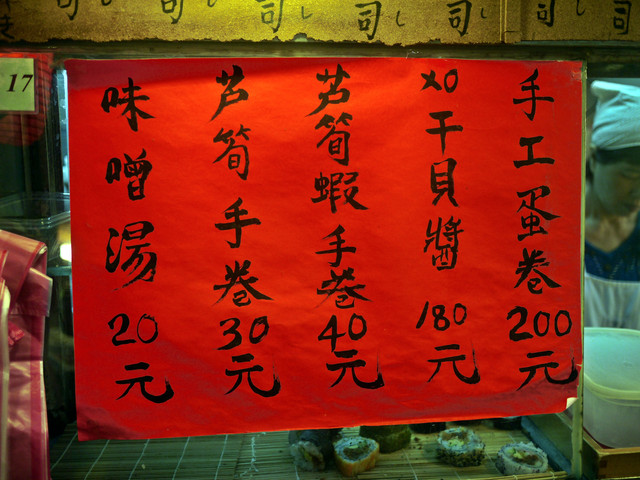 司し 司し 司し 司し
17
手工蛋卷200元
XO干貝醬180元
芦筍蝦手卷40元
芦筍手卷30元
味噌湯20元